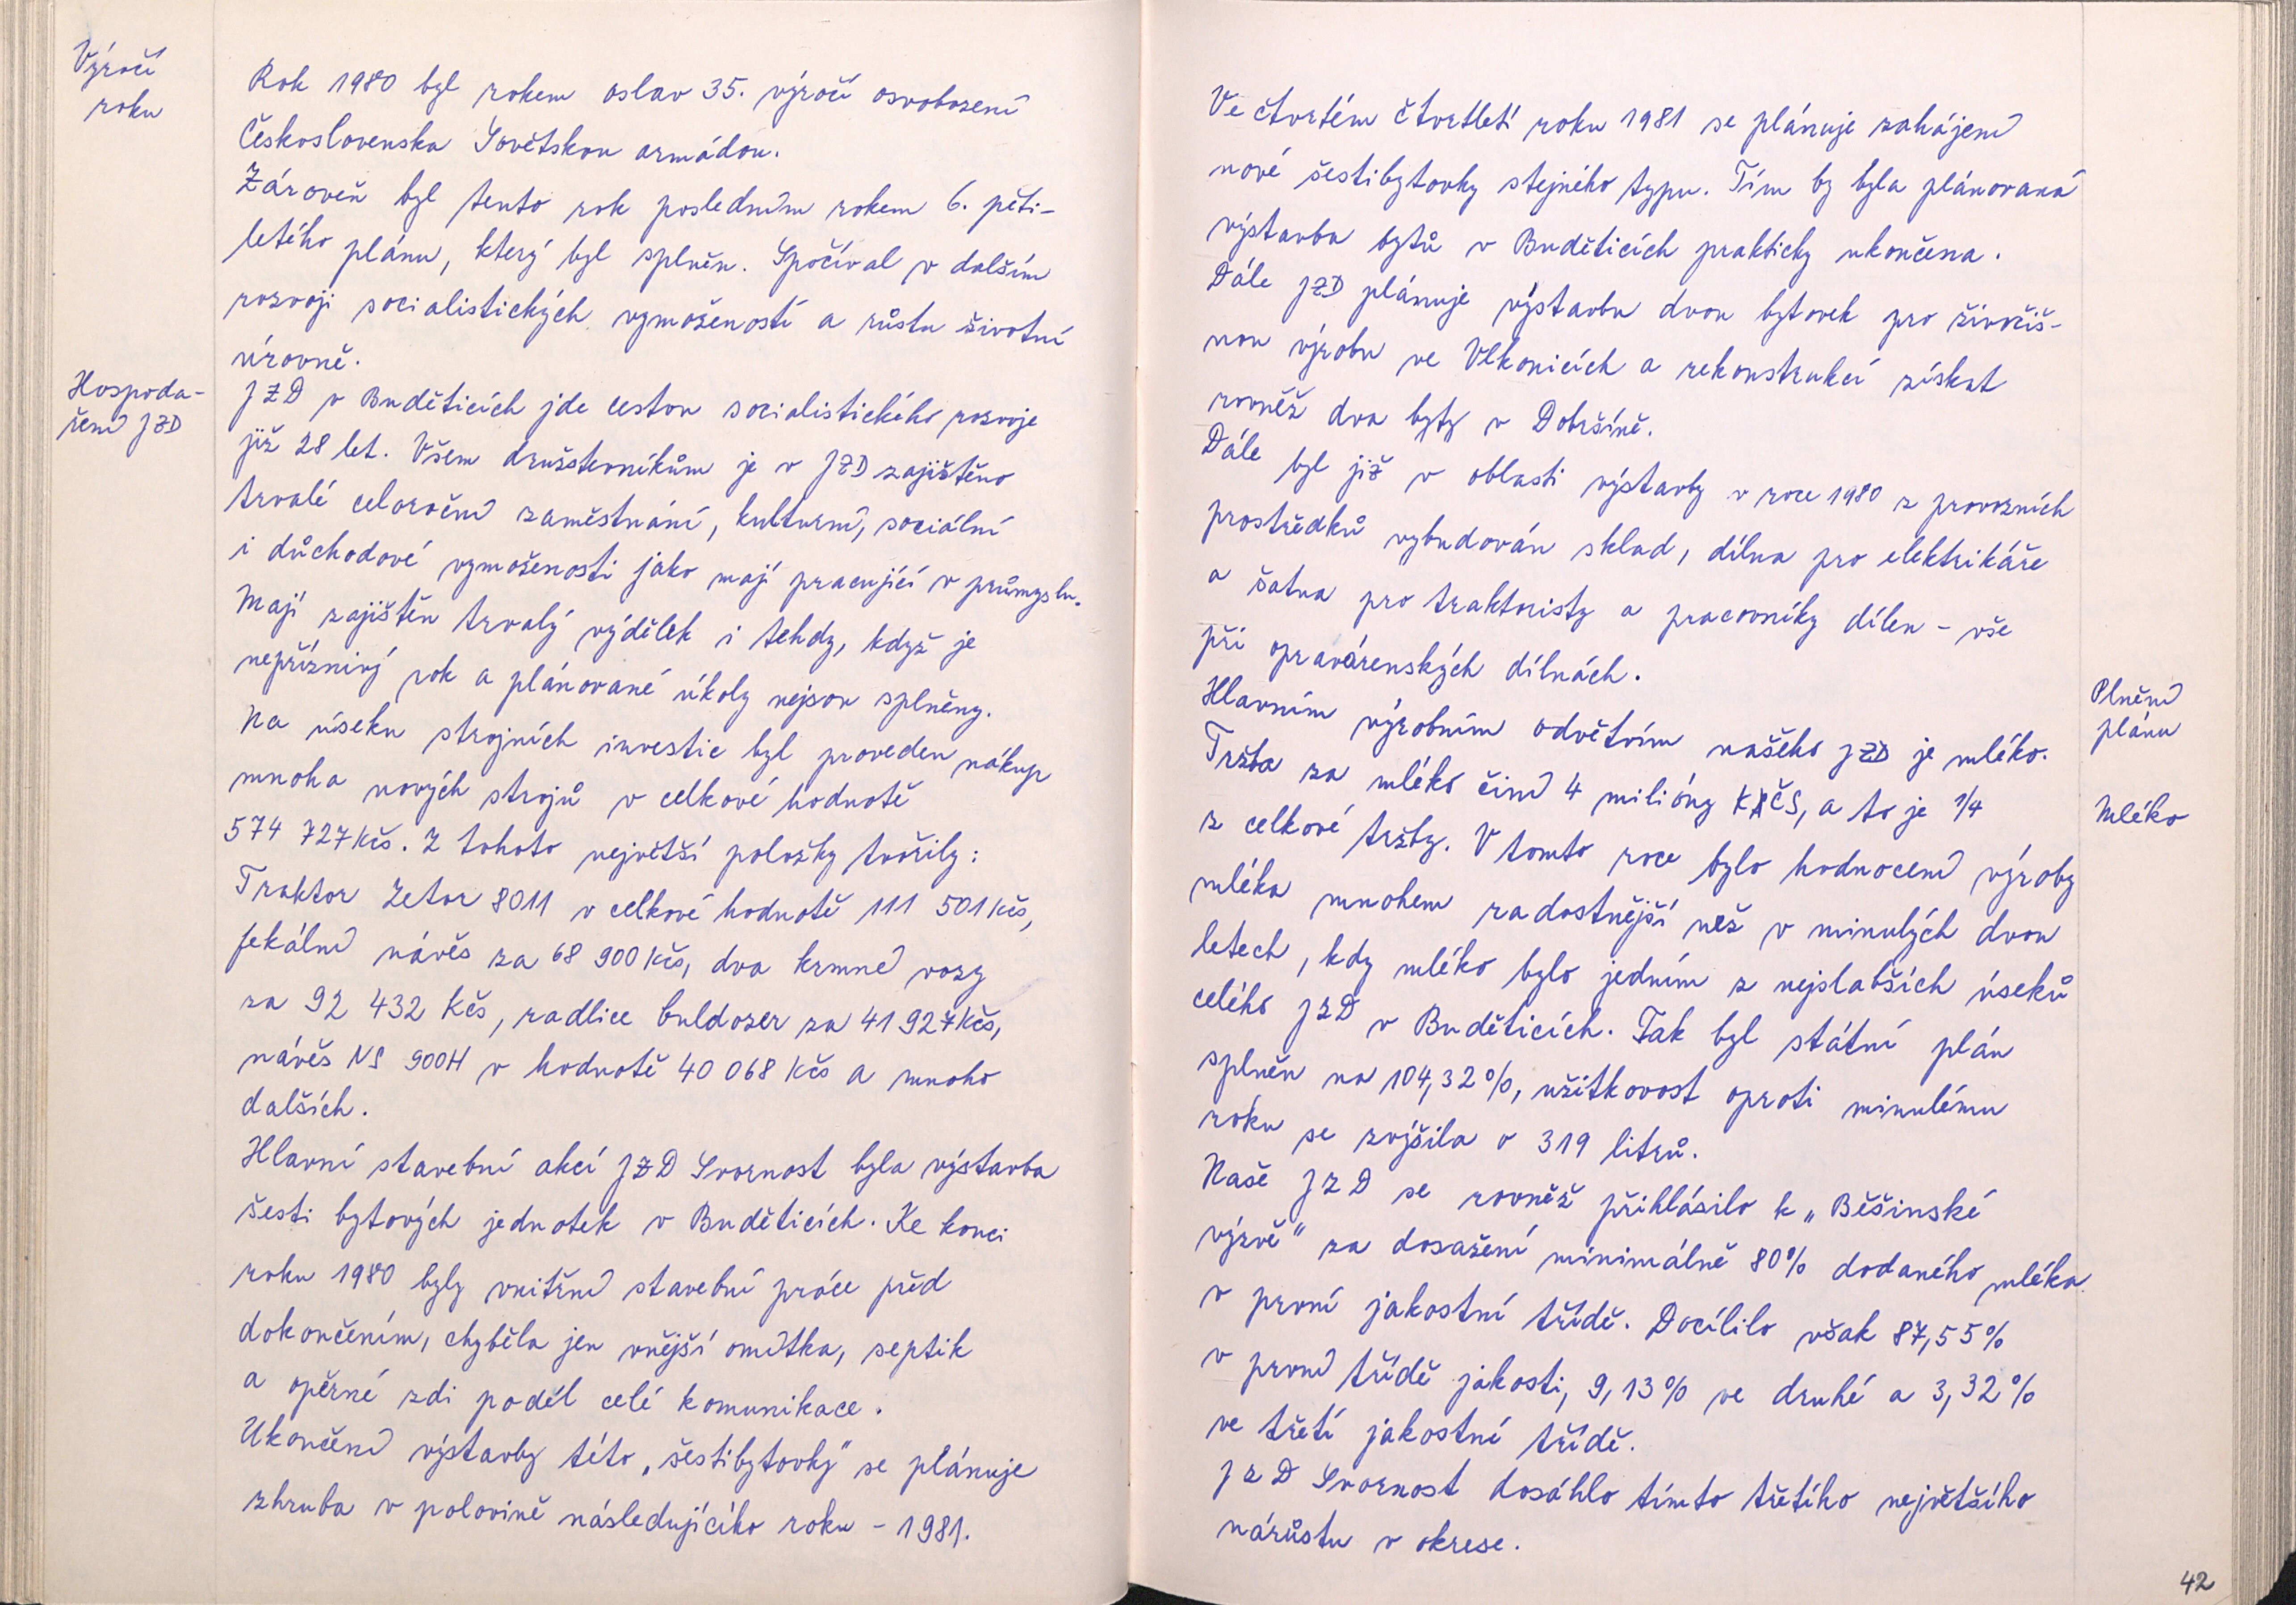 Výročí
roku
Rok 1980 byl rokem oslav 35. výročí osvobození
Československa Sovětskou armádou.
Zároveň byl tento rok posledním rokem 6. pěti-
letého plánu, který byl splněn. Spočíval v dalším
rozvoji socialistických vymožeností a růstu životní
úrovně.
Hospoda-
ření JZD
JZD v Buděticích jde cestou socialistického rozvoje
již 28 let. Všem družstevníkům je v JZD zajištěno
trvalé celoroční zaměstnání, kulturní, sociální
i důchodové vymoženosti jako mají pracující v průmyslu.
Mají zajištěn trvalý výdělek i tehdy, když je
nepříznivý rok a plánované úkoly nejsou splněny.
Na úseku strojních investic byl proveden nákup
mnoha nových strojů v celkové hodnotě
574 727 Kčs. Z tohoto největší položky tvořily:
Traktor Zetor 8011 v celkové hodnotě 111 501 Kčs,
fekální návěs za 68 900 Kčs, dva krmné vozy
za 92 432 Kčs, radlice buldozer za 41 927 Kčs,
návěs NS 900H v hodnotě 40 068 Kčs a mnoho
dalších.
Hlavní stavební akcí JZD Svornost byla výstavba
šesti bytových jednotek v Buděticích. Ke konci
roku 1980 byly vnitřní stavební práce před
dokončením, chyběla jen vnější omítka, septik
a opěrné zdi podél celé komunikace.
Ukončení výstavby této „šestibytovky" se plánuje
zhruba v polovině následujícího roku - 1981.
Ve čtvrtém čtvrtletí roku 1981 se plánuje zahájení
nové šestibytovky stejného typu. Tím by byla plánovaná
výstavba bytů v Buděticích prakticky ukončena.
Dále JZD plánuje výstavbu dvou bytovek pro živočiš-
nou výrobu ve Vlkonicích a rekonstrukcí získat
rovněž dva byty v Dobršíně.
Dále byl již v oblasti výstavby v roce 1980 z provozních
prostředků vybudován sklad, dílna pro elektrikáře
a šatna pro traktoristy a pracovníky dílen - vše
při opravárenských dílnách.
Plnění
plánu
Hlavním výrobním odvětvím našeho JZD je mléko.
Tržba za mléko činí 4 milióny KČS, a to je 1/4
Mléko
z celkové tržby. V tomto roce bylo hodnocení výroby
mléka mnohem radostnější než v minulých dvou
letech, kdy mléko bylo jedním z nejslabších úseků
celého JZD v Buděticích. Tak byl státní plán
splněn na 104,32%, užitkovost oproti minulému
roku se zvýšila o 319 litrů.
Naše JZD se rovněž přihlásilo k „Běšinské
výzvě" za dosažení minimálně 80% dodaného mléka
v první jakostní třídě. Docílilo však 87,55%
v první třídě jakosti, 9,13% ve druhé a 3,32%
ve třetí jakostní třídě.
JZD Svornost dosáhlo tímto třetího největšího
nárůstu v okrese.
42